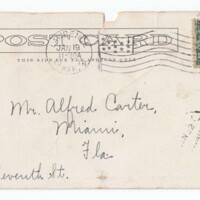 POST CARD
THIS SIDE FOR THE ADDRESS ONLY
JAN 19
Mr. Alfred Carter,
Miami,
Fla.
Seventh St.